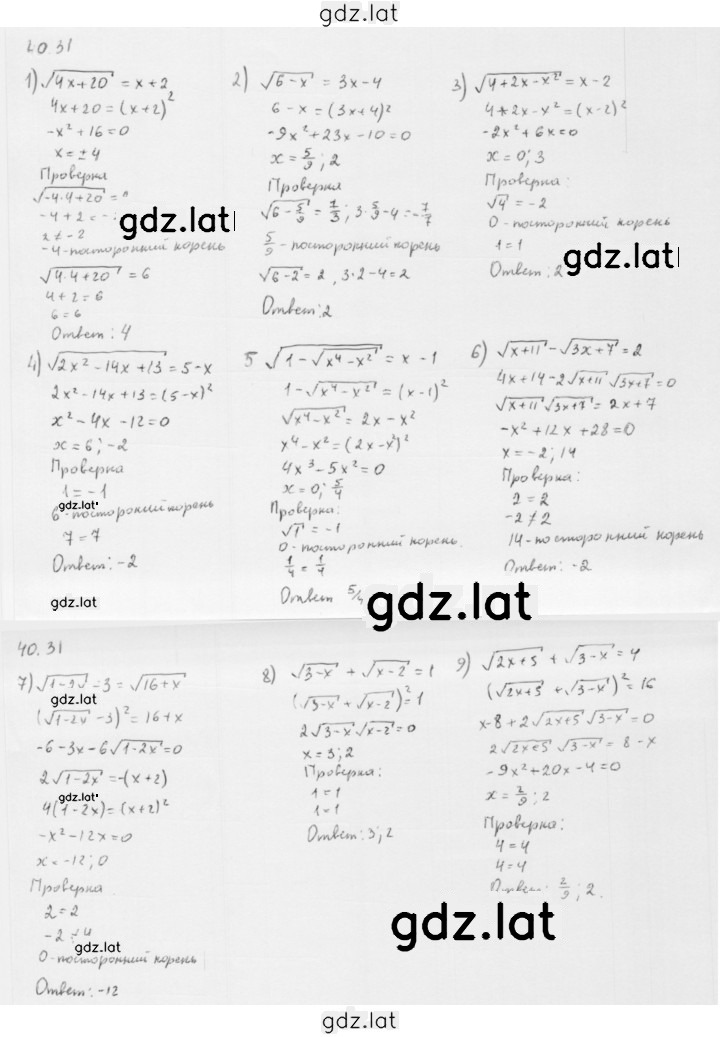 gdz.lat
40.31
1) √(4x+20) = x+2
4x+20=(x+2)²
-x²+16=0
x=±4
Проверка
√(-4·4+20) =
-4+2=-
2≠-2
-4-посторонний корень
√(4·4+20) = 6
4+2=6
6=6
Ответ: 4
2) √(6-x) = 3x-4
6-x=(3x+4)²
-9x²+23x-10=0
x=5/9; 2
Проверка
√(6-5/9) = 7/3; 3·5/9-4=-7/7
5/9-посторонний корень
√(6-2)=2, 3·2-4=2
Ответ: 2
3) √(4+2x-x²) = x-2
4+2x-x²=(x-2)²
-2x²+6x=0
x=0; 3
Проверка:
√4 = -2
0-посторонний корень
1=1
Ответ: 2
gdz.lat
gdz.lat
4) √(2x²-14x+13) = 5-x
2x²-14x+13=(5-x)²
x²-4x-12=0
x=6; -2
Проверка
1=-1
gdz.lat
6-посторонний корень
7=7
Ответ: -2
gdz.lat
5 √(1-√(x⁴-x²)) = x-1
1-√(x⁴-x²) = (x-1)²
√(x⁴-x²) = 2x-x²
x⁴-x²=(2x-x²)²
4x³-5x²=0
x=0; 5/4
Проверка:
√1 = -1
0-посторонний корень.
1/4 = 1/4
Ответ 5/4
6) √(x+11) - √(3x+7) = 2
4x+14-2√(x+11) √(3x+7) = 0
√(x+11) √(3x+7) = 2x+7
-x²+12x+28=0
x=-2; 14
Проверка:
2=2
-2≠2
14-посторонний корень
Ответ: -2
gdz.lat
40.31
7) √(1-2x) - 3 = √(16+x)
gdz.lat
(√(1-2x) - 3)² = 16+x
-6-3x-6√(1-2x) = 0
2√(1-2x) = -(x+2)
gdz.lat
4(1-2x)=(x+2)²
-x²-12x=0
x=-12; 0
Проверка.
2=2
-2≠4
gdz.lat
0-посторонний корень
Ответ: -12
8) √(3-x) + √(x-2) = 1
(√(3-x) + √(x-2))² = 1
2√(3-x) √(x-2) = 0
x=3; 2
Проверка:
1=1
1=1
Ответ: 3; 2
9) √(2x+5) + √(3-x) = 4
(√(2x+5) + √(3-x))² = 16
x-8+2√(2x+5) √(3-x) = 0
2√(2x+5) √(3-x) = 8-x
-9x²+20x-4=0
x=2/9; 2
Проверка:
4=4
4=4
Ответ: 2/9; 2.
gdz.lat
gdz.lat